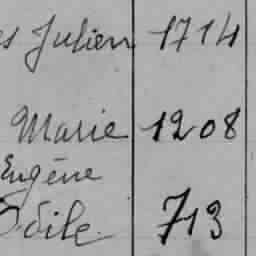 Julien 1714
Marie 1208
Eugène
Odile 713